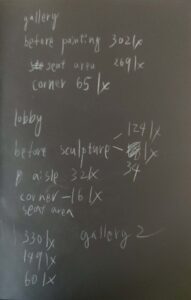 gallery
before painting 302 lx
seat area 269 lx
corner 65 lx
lobby
124 lx
before sculpture lx
34
aisle 32 lx
corner - 16 lx
seat area
330 lx gallery 2
149 lx
60 lx